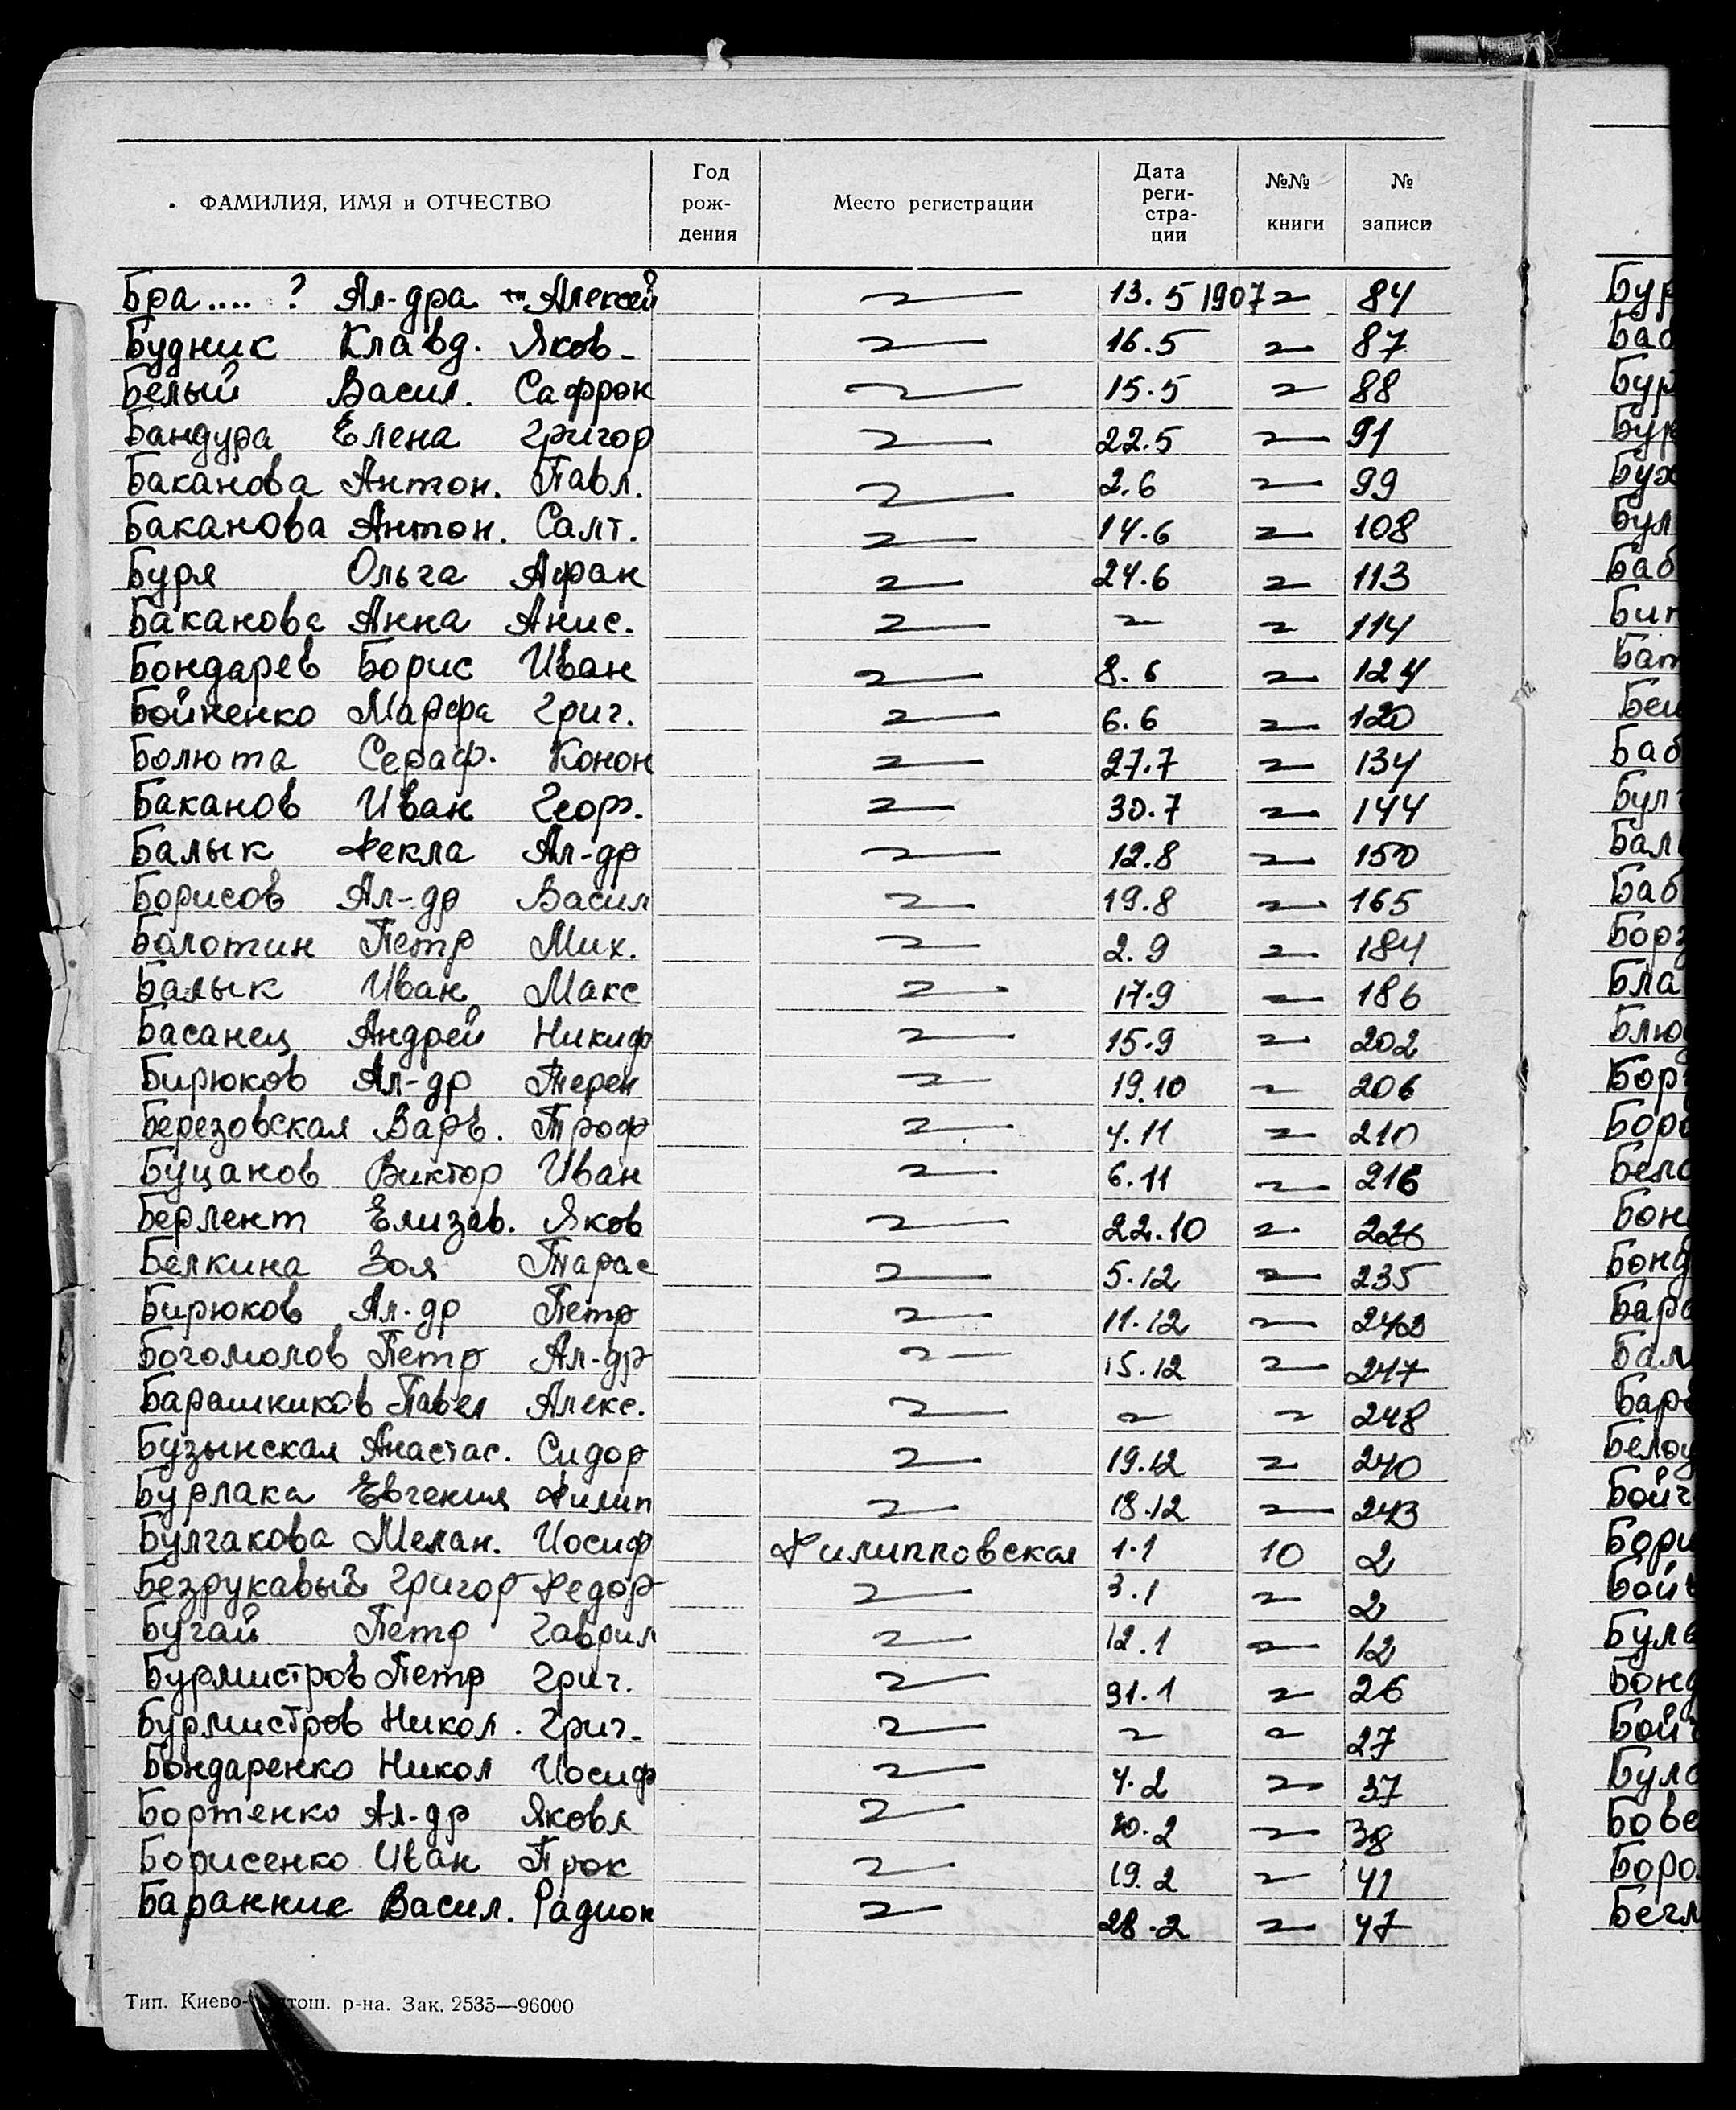 ФАМИЛИЯ, ИМЯ и ОТЧЕСТВО | Год рож-дения | Место регистрации | Дата реги-стра-ции | №№ книги | № записи
Бра.... ? Ал-дра Алексей 〃 13.5 1907 〃 84
Будник Клавд. Яков- 〃 16.5 〃 87
Белый Васил. Сафрон 〃 15.5 〃 88
Бандура Елена Григор 〃 22.5 〃 91
Баканова Антон. Павл. 〃 2.6 〃 99
Баканова Антон. Салт. 〃 14.6 〃 108
Буря Ольга Афан 〃 24.6 〃 113
Баканова Анна Анис. 〃 〃 〃 114
Бондарев Борис Иван 〃 8.6 〃 124
Бойненко Марфа Григ. 〃 6.6 〃 120
Болюта Сераф. Конон 〃 27.7 〃 134
Баканов Иван Георг. 〃 30.7 〃 144
Балык Фекла Ал-др 〃 12.8 〃 150
Борисов Ал-др Васил 〃 19.8 〃 165
Болотин Петр Мих. 〃 2.9 〃 184
Балык Иван Макс 〃 17.9 〃 186
Басанец Андрей Никиф 〃 15.9 〃 202
Бирюков Ал-др Терен 〃 19.10 〃 206
Березовская Варв. Троф 〃 4.11 〃 210
Буцанов Виктор Иван 〃 6.11 〃 216
Берлент Елизав. Яков 〃 22.10 〃 226
Белкина Зоя Тарас 〃 5.12 〃 235
Бирюков Ал-др Петр 〃 11.12 〃
Богомолов Петр Ал-др 〃 15.12 〃 247
Барашников Павел Алекс. 〃 〃 〃 248
Бузынская Анастас. Сидор 〃 19.12 〃 240
Бурлака Евгения Филип 〃 18.12 〃 243
Булгакова Мелан. Иосиф Филипповская 1.1 10 2
Безрукавый Григор Федор 〃 3.1 〃 2
Бугай Петр Гаврил 〃 12.1 〃 12
Бурмистров Петр Григ. 〃 31.1 〃 26
Бурмистров Никол. Григ. 〃 〃 〃 27
Бондаренко Никол Иосиф 〃 4.2 〃 37
Бортенко Ал-др Яковл 〃 10.2 〃 38
Борисенко Иван Прок 〃 19.2 〃 41
Баранник Васил. Радион 〃 28.2 〃 47
Тип. Киево- тош. р-на. Зак. 2535—96000